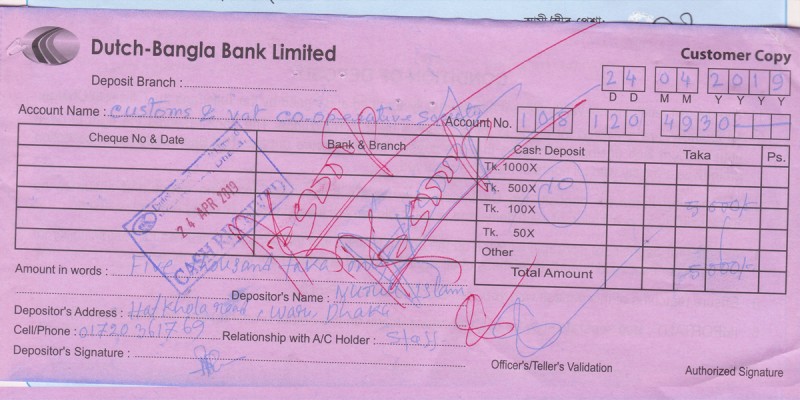 Dutch-Bangla Bank Limited
Customer Copy
Deposit Branch :
24 04 2019
D D M M Y Y Y Y
Account Name : customs & vat co-operative
Account No. 108 120 4930
Cheque No & Date Bank & Branch Cash Deposit Taka Ps.
Tk. 1000X
Tk. 500X 10
Tk. 100X 5000/-
Tk. 50X
Other
Total Amount 5000/-
24 APR 2019
CASH RECEIVED
Amount in words : Five thousand taka only
Depositor's Name : Nurul Islam
Depositor's Address : Hatkhola road, Wari, Dhaka
Cell/Phone : 01720361769 Relationship with A/C Holder : Staff
Depositor's Signature :
Officer's/Teller's Validation
Authorized Signature